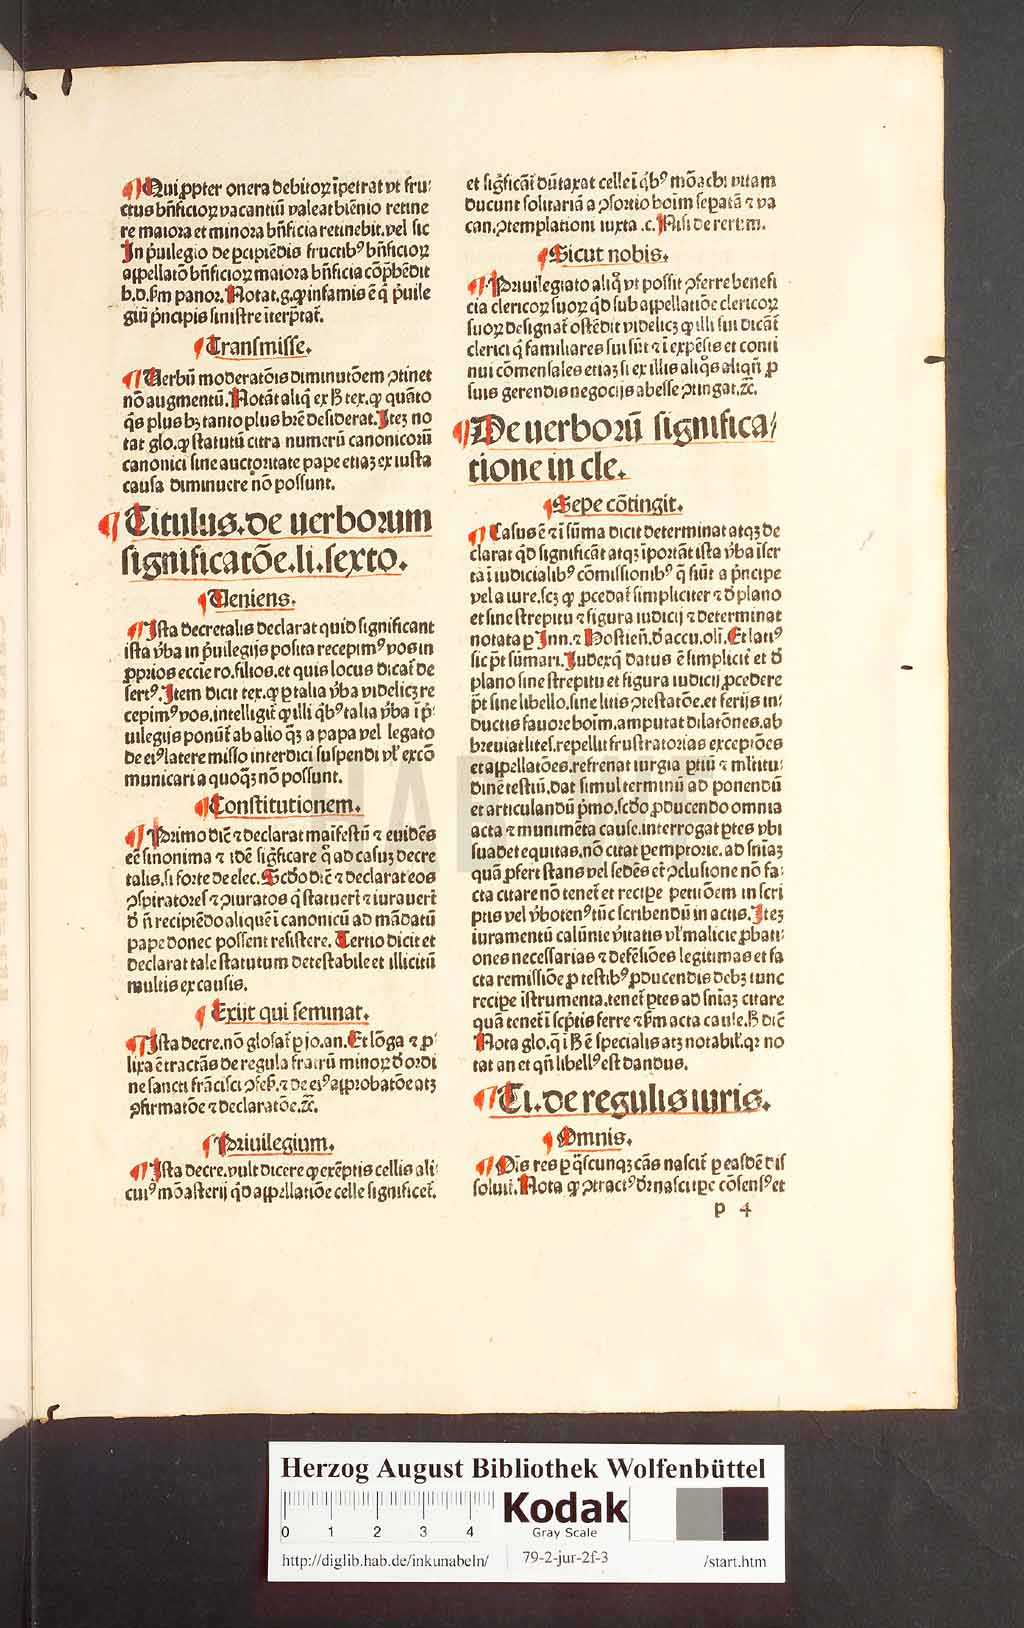 ¶ Qui ꝓpter onera debitoꝝ īpetrat vt fru⸗
ctus bn̄ficioꝝ vacantiū valeat biēnio retine
re maiora et minora bn̄ficia retinebit. vel sic
In p̄uilegio de ꝑcipiēdis fructibꝰ bn̄ficioꝝ
appellatō bn̄ficioꝝ maiora bn̄ficia cōp̄hēdit
b.d. ẜm panor. Notat. g. ꝙ infamis ē q̄ p̄uile
giū p̄ncipis sinistre iterp̄tat̄.
¶ Transmisse.
¶ Verbū moderatōis diminutōem ꝯtinet
nō augmentū. Notāt aliq̄ ex ħ tex. ꝙ quāto
q̄s plus hꝫ tanto plus hr̄e desiderat. Itеꝫ no
tat glo. ꝙ statutū citra numerū canonicorū
canonici sine auctoritate pape etiaꝫ ex iusta
causa diminuere nō possunt.
¶ Titulus. de uerborum
significatōe. li. sexto.
¶ Veniens.
¶ Ista decretalis declarat quid significant
ista v̄ba in p̄uilegijs posita recepimꝰ vos in
ꝓprios eccĺie ro. filios. et quis locus dicat̄ de
sertꝰ. Item dicit tex. ꝙ ꝑ talia v̄ba videlicꝫ re
cepimꝰ vos. intelligit̄ ꝙ illi q̄bꝰ talia v̄ba ī p̄⸗
uilegijs ponūt̄ ab alio q̄ꝫ a papa vel legato
de eiꝰ latere misso interdici suspendi vĺ excō
municari a quoq̄ꝫ nō possunt.
¶ Constitutionem.
¶ Primo dic̄ ⁊ declarat maīfestū ⁊ euidēs
eē sinonima ⁊ idē siḡficare q̄ ad casuꝫ decre
talis. si forte de elec. Scd̄o dic̄ ⁊ declarat eos
ꝯspiratores ⁊ ꝯiuratos q̄ statuer̄t ⁊ iurauer̄t
d̄ n̄ recipiēdo aliquē ī canonicū ad mādatū
pape donec possent resistere. Tertio dicit et
declarat tale statutum detestabile et illicitū
multis ex causis.
¶ Exijt qui seminat.
¶ Ista decre. nō glosat̄ ꝑ io. an. Et lōga ⁊ ꝓ⸗
lixa ē tractās de regula fratrū minoꝝ d̄ ordi
ne sancti frācisci ꝯfes̄. ⁊ de eiꝰ approbatōe atꝫ
ꝯfirmatōe ⁊ declaratōe. ⁊c̄.
¶ Priuilegium.
¶ Ista decre. vult dicere ꝙ exēptis cellis ali⸗
cuiꝰ mōasterij q̄d appellatiōe celle significet̄.
et siḡficāt̄ dūtaxat celle ī q̄bꝰ mōachi vitam
ducunt solitariā a ꝯsortio hoīm sepatā ⁊ va
can. ꝯtemplationi iuxta .c. Nisi de rerum.
¶ Sicut nobis.
¶ Priuilegiato aliq̄ vt possit ꝯferre benefi
cia clericoꝝ suoꝝ q̄d sub appellatiōe clericoꝝ
suoꝝ designat̄ ostēdit videlicꝫ ꝙ illi sui dicāt̄
clerici q̄ familiares sui sūt ⁊ ī expēsis et conti
nui cōmensales etiaꝫ si ex illis aliq̄s aliqn̄ ꝓ
suis gerendis negocijs abesse ꝯtingat. ⁊c̄.
¶ De uerborū significa⸗
tione in cle.
¶ Sepe cōtingit.
¶ Casus ē ⁊ ī sūma dicit determinat atqꝫ de
clarat q̄d significāt atqꝫ īportāt ista v̄ba īser
ta ī iudicialibꝰ cōmissionibꝰ q̄ fiūt a p̄ncipe
vel a iure. scꝫ ꝙ ꝓcedat̄ simpliciter ⁊ d̄ plano
et sine strepitu ⁊ figura iudicij ⁊ determinat
notata ꝑ Inn. ⁊ Hostien̄. d̄ accu. oĺī. Et latiꝰ
sic p̄t sūmari. Iudex q̄ datus ē simplicit̄ et d̄
plano sine strepitu et figura iudicij ꝓcedere
p̄t sine libello. sine litis ꝯtestatōe. et ferijs in⸗
ductis fauore hoīm. amputat dilatōnes. ab
breuiat lites. repellit frustratorias exceptōes
et appellatōes. refrenat iurgia ꝑtiū ⁊ mĺtitu⸗
dinē testiū. dat simul terminū ad ponendū
et articulandū p̄mo. scd̄o. ꝓducendo omnia
acta ⁊ munimēta cause. interrogat ꝑtes vbi
suadet equitas. nō citat ꝑemptorie. ad sn̄iaꝫ
quā ꝓfert stans vel sedēs et̄ ꝯclusione nō fa⸗
cta citare nō tenet̄ et recipe petitōem in scri
ptis vel v̄botenꝰ tūc scribendū in actis. Iteꝫ
iuramentū calūnie v̄itatis vĺ malicie ꝓbati⸗
ones necessarias ⁊ defēsiōes legitimas et fa
cta remissiōe ꝑ testibꝰ ꝓducendis debꝫ tunc
recipe īstrumenta. tenet̄ ꝑtes ad sn̄iaꝫ citare
quā tenet̄ ī sc̄ptis ferre ⁊ ẜm acta cause. ħ dic̄
Nota glo. q̄ ī ħ ē specialis atꝫ notabiĺ. qr no
tat an et qn̄ libellꝰ est dandus.
¶ Ti. de regulis iuris.
¶ Omnis.
¶ Oīs res ꝑ q̄scunqꝫ cās nascit̄ ꝑ easdē dis
soluit̄. Nota ꝙ ꝯtractꝰ d̄r nasci ꝑ cōsensꝰ et
p 4
HAB
Herzog August Bibliothek Wolfenbüttel
0 1 2 3 4
Kodak
Gray Scale
http://diglib.hab.de/inkunabeln/ 79-2-jur-2f-3 /start.htm